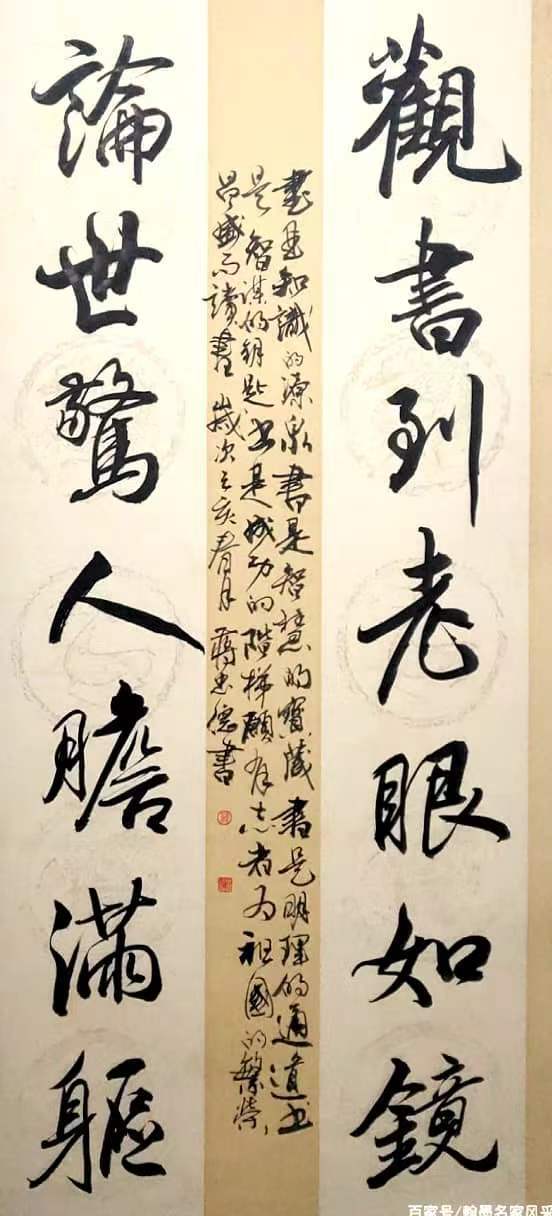 觀書到老眼如鏡
論世驚人膽滿軀
書是知識的源泉書是智慧的寶藏書是明理的通道書
是智謀的鑰匙書是成功的階梯願有志者為祖國的繁榮
昌盛而讀書 歲次己亥春月 蔣忠德書
百家号/翰墨名家风采